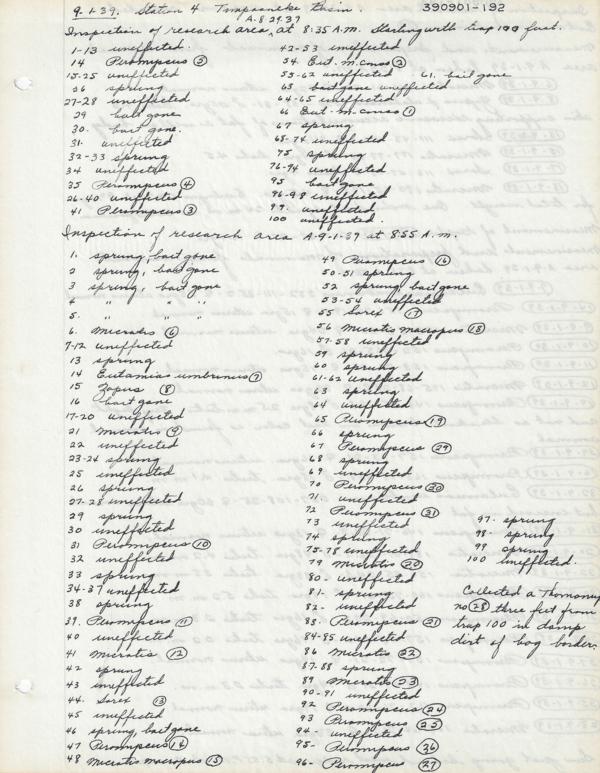 9-1-39. Station 4 Timpaaneke Basin. 390901-192
A.8 29.39
Inspection of research area, at 8:35 A.M. Starting with trap 100 first.
1-13 uneffected.
14 Peromyscus ⑤
15-25 uneffected
26 sprung
27-28 uneffected
29 bait gone
30. bait gone.
31. uneffected
32-33 sprung
34 uneffected
35 Peromyscus ④
36-40 uneffected.
41 Peromyscus ③
42-53 uneffected
54. Eut. m. cons ②
55-62 uneffected 61. bait gone
63 bait gone uneffected
64-65 uneffected
66 Eut. m. cons ①
67 sprung
68-74 uneffected
75 sprung
76-94 uneffected
95 bait gone
96-98 uneffected
99. uneffected
100 uneffected.
Inspection of research area A-9-1-39 at 8:55 A.M.
1. sprung, bait gone
2 sprung, bait gone
3 sprung, bait gone
4 " " "
5. " " "
6. Microtis ⑥
7-12 uneffected
13 sprung
14 Eutamias umbrinus ⑦
15 Zapus ⑧
16 bait gone
17-20 uneffected
21 Microtis ⑨
22 uneffected
23-24 sprung
25 uneffected
26 sprung
27-28 uneffected
29 sprung
30 uneffected
31 Peromyscus ⑩
32 uneffected
33 sprung
34-37 uneffected
38 sprung
39. Peromyscus ⑪
40 uneffected
41 Microtis ⑫
42 sprung
43 uneffected
44. Sorex ⑬
45 uneffected
46 sprung, bait gone
47 Peromyscus ⑭
48 Microtis macropus ⑮
49 Peromyscus ⑯
50-51 sprung
52 sprung, bait gone
53-54 uneffected
55 Sorex ⑰
56 Microtis macropus ⑱
57-58 uneffected
59 sprung
60 sprung
61-62 uneffected
63 sprung
64 uneffected
65 Peromyscus ⑲
66 sprung
67 Peromyscus ㉙
68 sprung
69 uneffected
70 Peromyscus ㉚
71 uneffected
72 Peromyscus ㉛
73 uneffected
74 sprung
75-78 uneffected
79 Microtis ⑳
80- uneffected
81- sprung
82- uneffected
83- Peromyscus ㉑
84-85 uneffected
86 Microtis ㉒
87-88 sprung
89 Microtis ㉓
90-91 uneffected
92 Peromyscus ㉔
93 Peromyscus ㉕
94- uneffected
95- Peromyscus ㉖
96- Peromyscus ㉗
97- sprung
98- sprung
99 sprung
100 uneffected.
Collected a Thomomys
no ㉘ three feet from
trap 100 in damp
dirt of bog border.